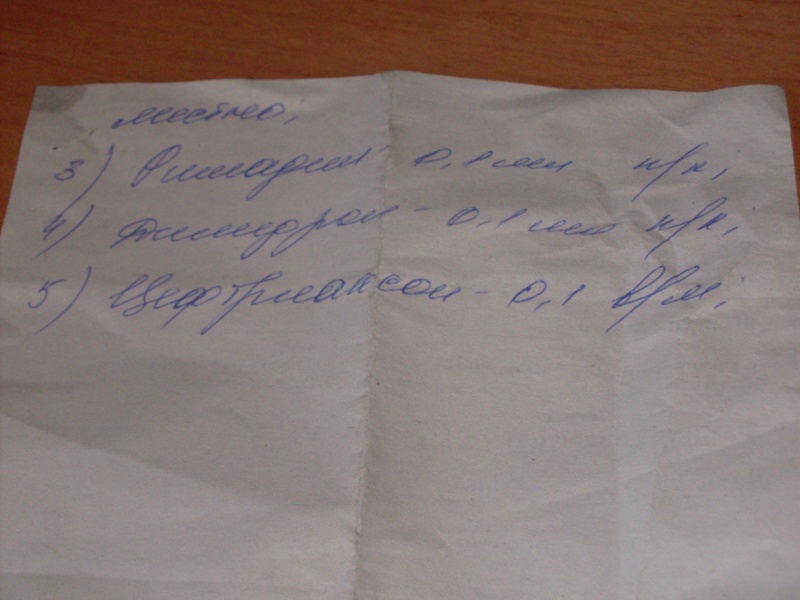 местно;
3) Римадил 0,1 мл п/к;
4) Димедрол - 0,1 мл п/к;
5) Цефтриаксон - 0,1 в/м;